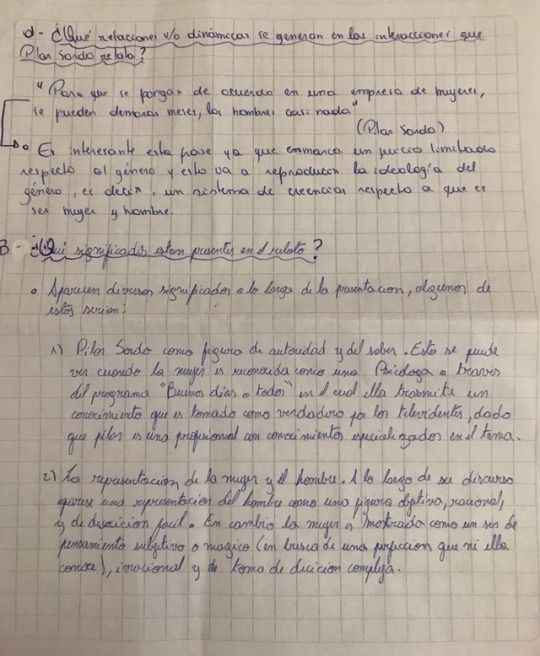 d- ¿Qué relaciones y/o dinámicas se generan en las interacciones que
Pilar Sordo relata?
"Para que se pongan de acuerdo en una empresa de mujeres,
se pueden demorar meses, los hombres casi nada"
(Pilar Sordo)
Es interesante esta frase ya que enmarca un juicio limitado
respecto al género y esto va a reproducir la ideología del
género, es decir, un sistema de creencias respecto a que es
ser mujer y hombre.
3- ¿Qué significados estan presentes en el relato?
Aparecen diversos significados a lo largo de la presentacion, algunos de
estos serian:
1) Pilar Sordo como figura de autoridad y del saber. Esto se puede
ver cuando la mujer es reconocida como una Psicologa a traves
del programa "Buenos dias a todos" en el cual ella trasmite un
conocimiento que es tomado como verdadero por los televidentes, dado
que pilar es una profesional con conocimientos especializados en el tema.
2) La representación de la mujer y el hombre. A lo largo de su discurso
aparese una representacion del hombre como una figura objetiva, racional,
y de desicion facil. En cambio la mujer es mostrada como un ser de
pensamiento subjetivo o magico (en busca de una perfeccion que ni ella
conoce), irracional y de toma de dicision compleja.